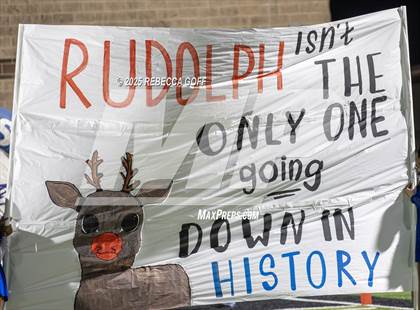 RUDOLPH isn't
THE
ONLY ONE
going
DOWN IN
HISTORY
© 2025 REBECCA GOFF
MAXPREPS.COM